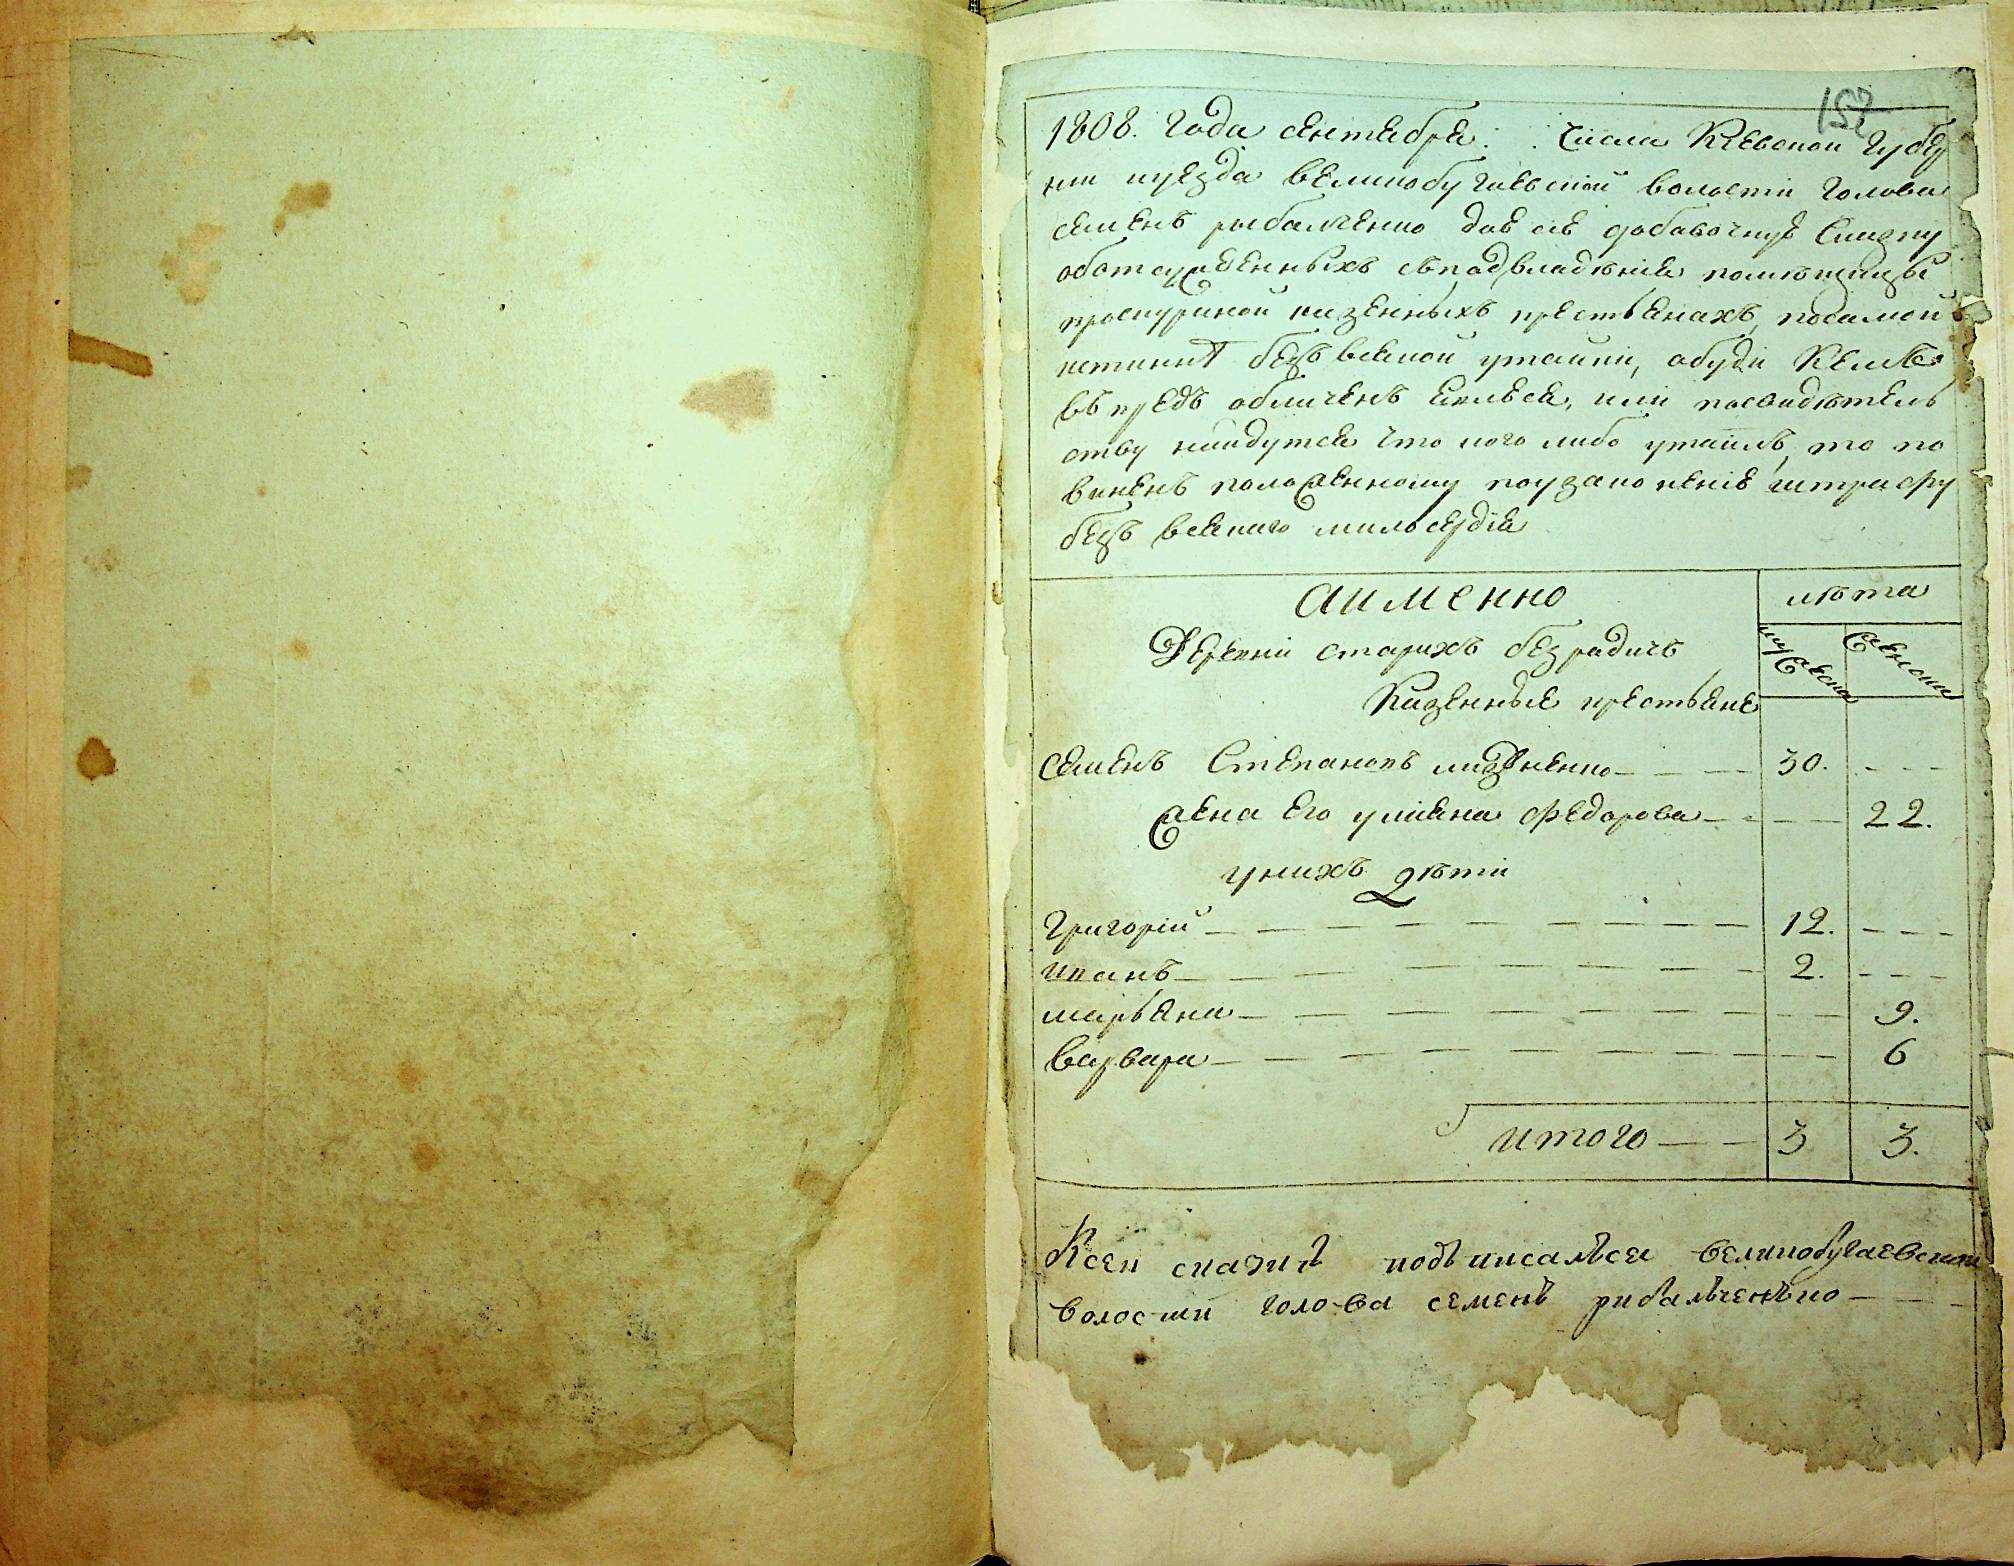 152
1808. года сентебра: : числа Киевской губер
нии иуезда великобугаевской волости голова
семенъ рыбалченко дав сіе добавочную скаску
оботсужденныхъ съподвладѣнія помѣщицы
проскуриной казенныхъ крестьянахъ, посамой
истиннѣ безъ всякой утайки, абуди кемъ
въпредь обличенъ явлься, или посвидѣтель
ству найдутся что кого либо утаилъ, то по
виненъ положенному поузаконеніе штрафу
безъ всякаго милосердія
аименно
лѣта
Деревни старихъ безрадичъ
мужеска
женска
Казенные крестьяне
семенъ Степановъ лизвненко 30.
жена его улияна федорова 22.
унихъ дѣти
григорій 12.
иванъ 2.
марьяна 9.
варвара 6
итого 3 3.
Ксей сказкѣ подъписалъся великобугаевской
волости голова семенъ рибалъченъко